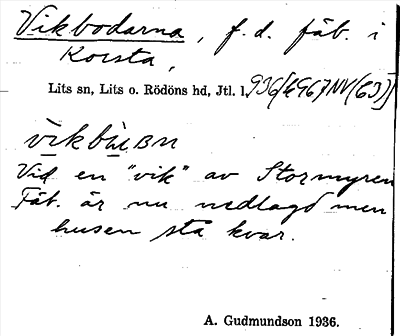 Vikbodarna, f.d. fäb. i
Korsta,
Lits sn, Lits o. Rödöns hd, Jtl. l.
Vid en "vik" av Stormyren
Fäb. är nu nedlagd men
husen stå kvar.
A. Gudmundson 1936.